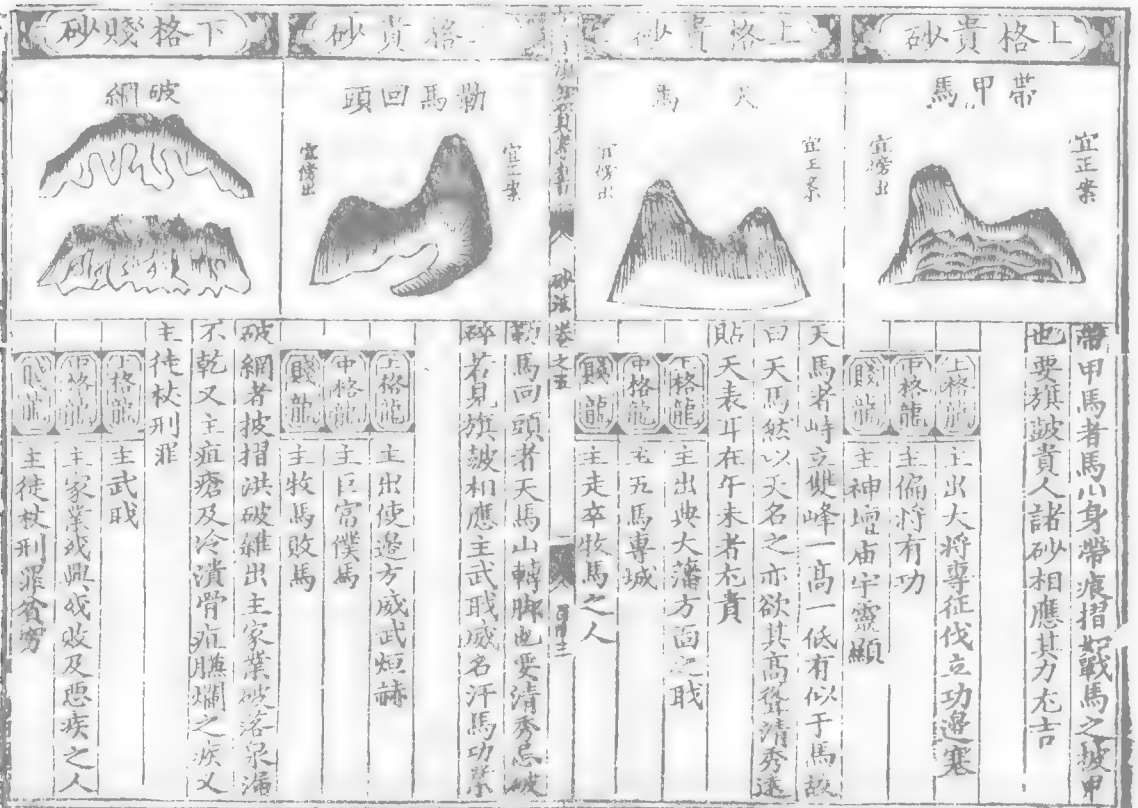 上格貴砂
帶甲馬
宜正案
宜傍出
帶甲馬者馬山身帶痕摺如戰馬之披甲
也要旗皷貴人諸砂相應其力尤吉
上格龍 主出大將專征伐立功邊塞
中格龍 主偏將有功
賤龍 主神壇庙宇靈顯
上格貴砂
天馬
宜正案
宜傍出
天馬者峙立雙峰一高一低有似于馬故
曰天馬然以天名之亦欲其高聳清秀遠
貼天表耳在午未者尤貴
上格龍 主出典大藩方面之戝
中格龍 主五馬專城
賤龍 主走卒牧馬之人
砂法卷之五
格貴砂
勒馬回頭
宜正案
宜傍出
勒馬回頭者天馬山轉脚也要清秀忌破
碎若見旗皷相應主武戝威名汗馬功業
上格龍 主出使邊方威武烜赫
中格龍 主巨富僕馬
賤龍 主牧馬敗馬
下格賤砂
破網
破網者披摺洪破維出主家業破落泉漏
不乾又主疽瘡及冷潰骨疽臁爛之疾又
主徒杖刑罪
上格龍 主武戝
中格龍 主家業或興或敗及惡疾之人
賤龍 主徒杖刑罪貧窮